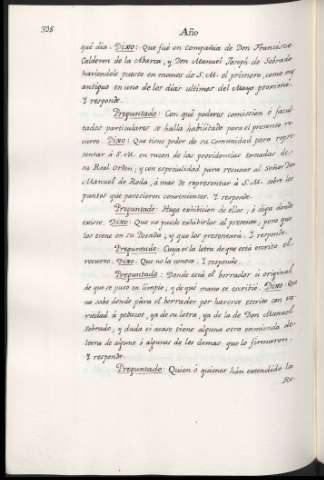 338 Año
qué dia. Dixo: Que fué en compañia de Don Francisco
Calderon de la Abarca, y Don Manuel Joseph de Sobrado
haviendole puesto en manos de S. M. el primero, como mas
antiguo en uno de los dias ultimos del Mayo proximo.
Y responde.
Preguntado: Con qué poderes comission ó facul-
tades particulares se halla habilitado para el presente re-
curso. Dixo: Que tiene poder de su Comunidad para repre-
sentar á S. M. en razon de las providencias tomadas de
su Real orden; y con especialidad para recusar al Señor Don
Manuel de Roda, á mas de representar á S. M. sobre los
puntos que parecieren convenientes. Y responde.
Preguntado: Haga exhibicion de ellos, ó diga donde
existe. Dixo: Que no puede exhibirlos al presente, pero que
los tiene en su Posada, y que los presentará. Y responde.
Preguntado: Cuya es la letra de que está escrito el
recurso. Dixo: Que no la conoce. Y responde.
Preguntado: Donde está el borrador ú original
de que se puso en limpio, y de qué mano se escribió. Dixo: Que
no sabe donde pára el borrador por haverse escrito con va-
riedad á pedazos, yá de su letra, yá de la de Don Manuel
Sobrado, y duda si acaso tiene alguna otra enmienda de
letra de alguno ó algunos de los demas que lo firmaron.
Y responde.
Preguntado: Quien ó quienes hán extendido la
Re-